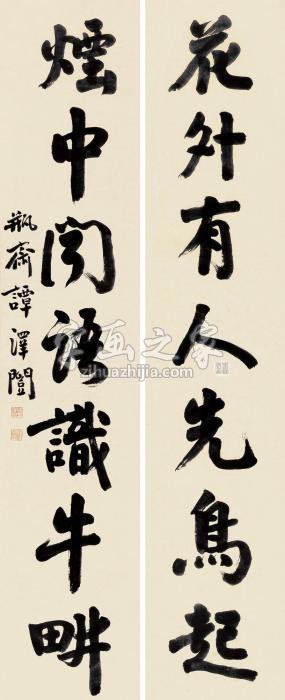 花外有人先鳥起
煙中聞語識牛畊
瓶齋譚澤闓
字画之家
zihuazhijia.com